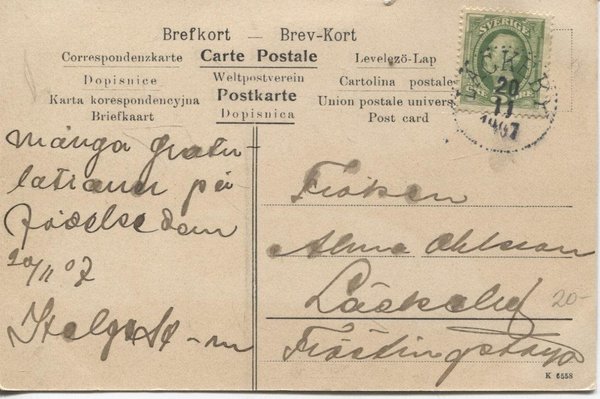 Brefkort — Brev-Kort
Correspondenzkarte Carte Postale Levelező-Lap
Dopisnice Weltpostverein Cartolina postale
Karta korespondencyjna Postkarte Union postale univers
Briefkaart Dopisnica Post card
SVERIGE
20
11
1907
många gratu-
lationer på
födelsedagen
20/11 07
Helga S-m
Fröken
Alma Ohlsson
20-
K 6558